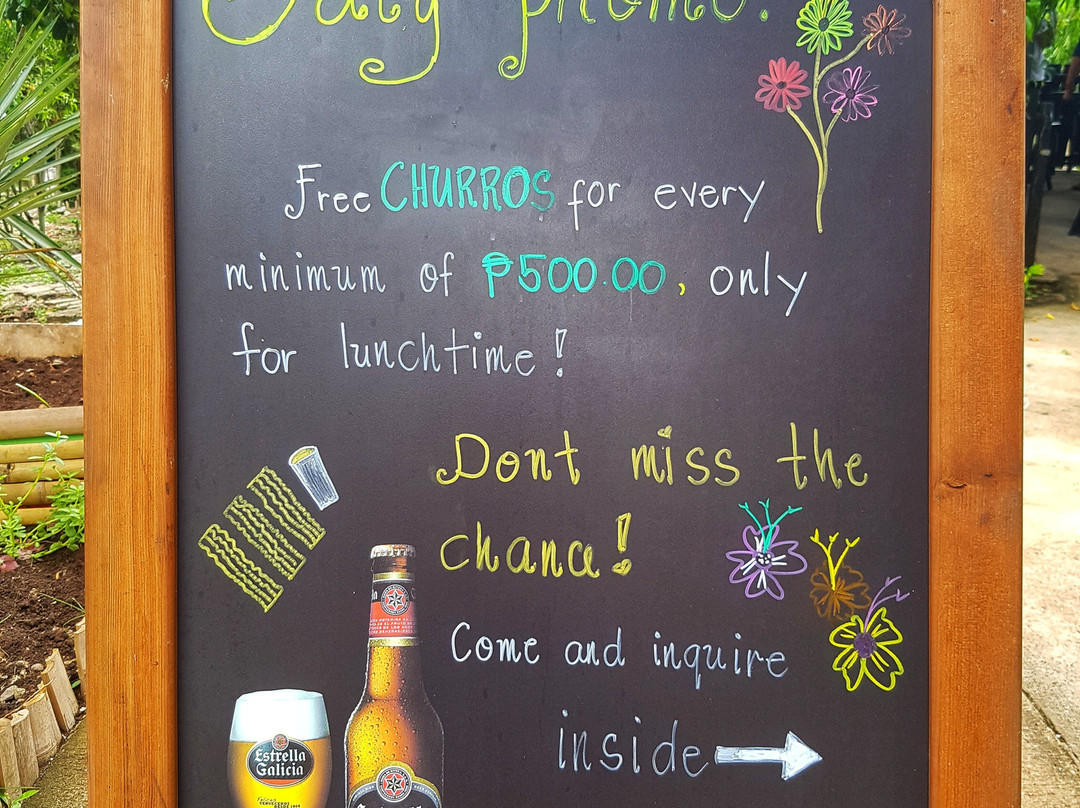 July promo!
Free CHURROS for every
minimum of ₱500.00, only
for lunchtime!
Dont miss the
chance!
Come and inquire
inside
Estrella
Galicia